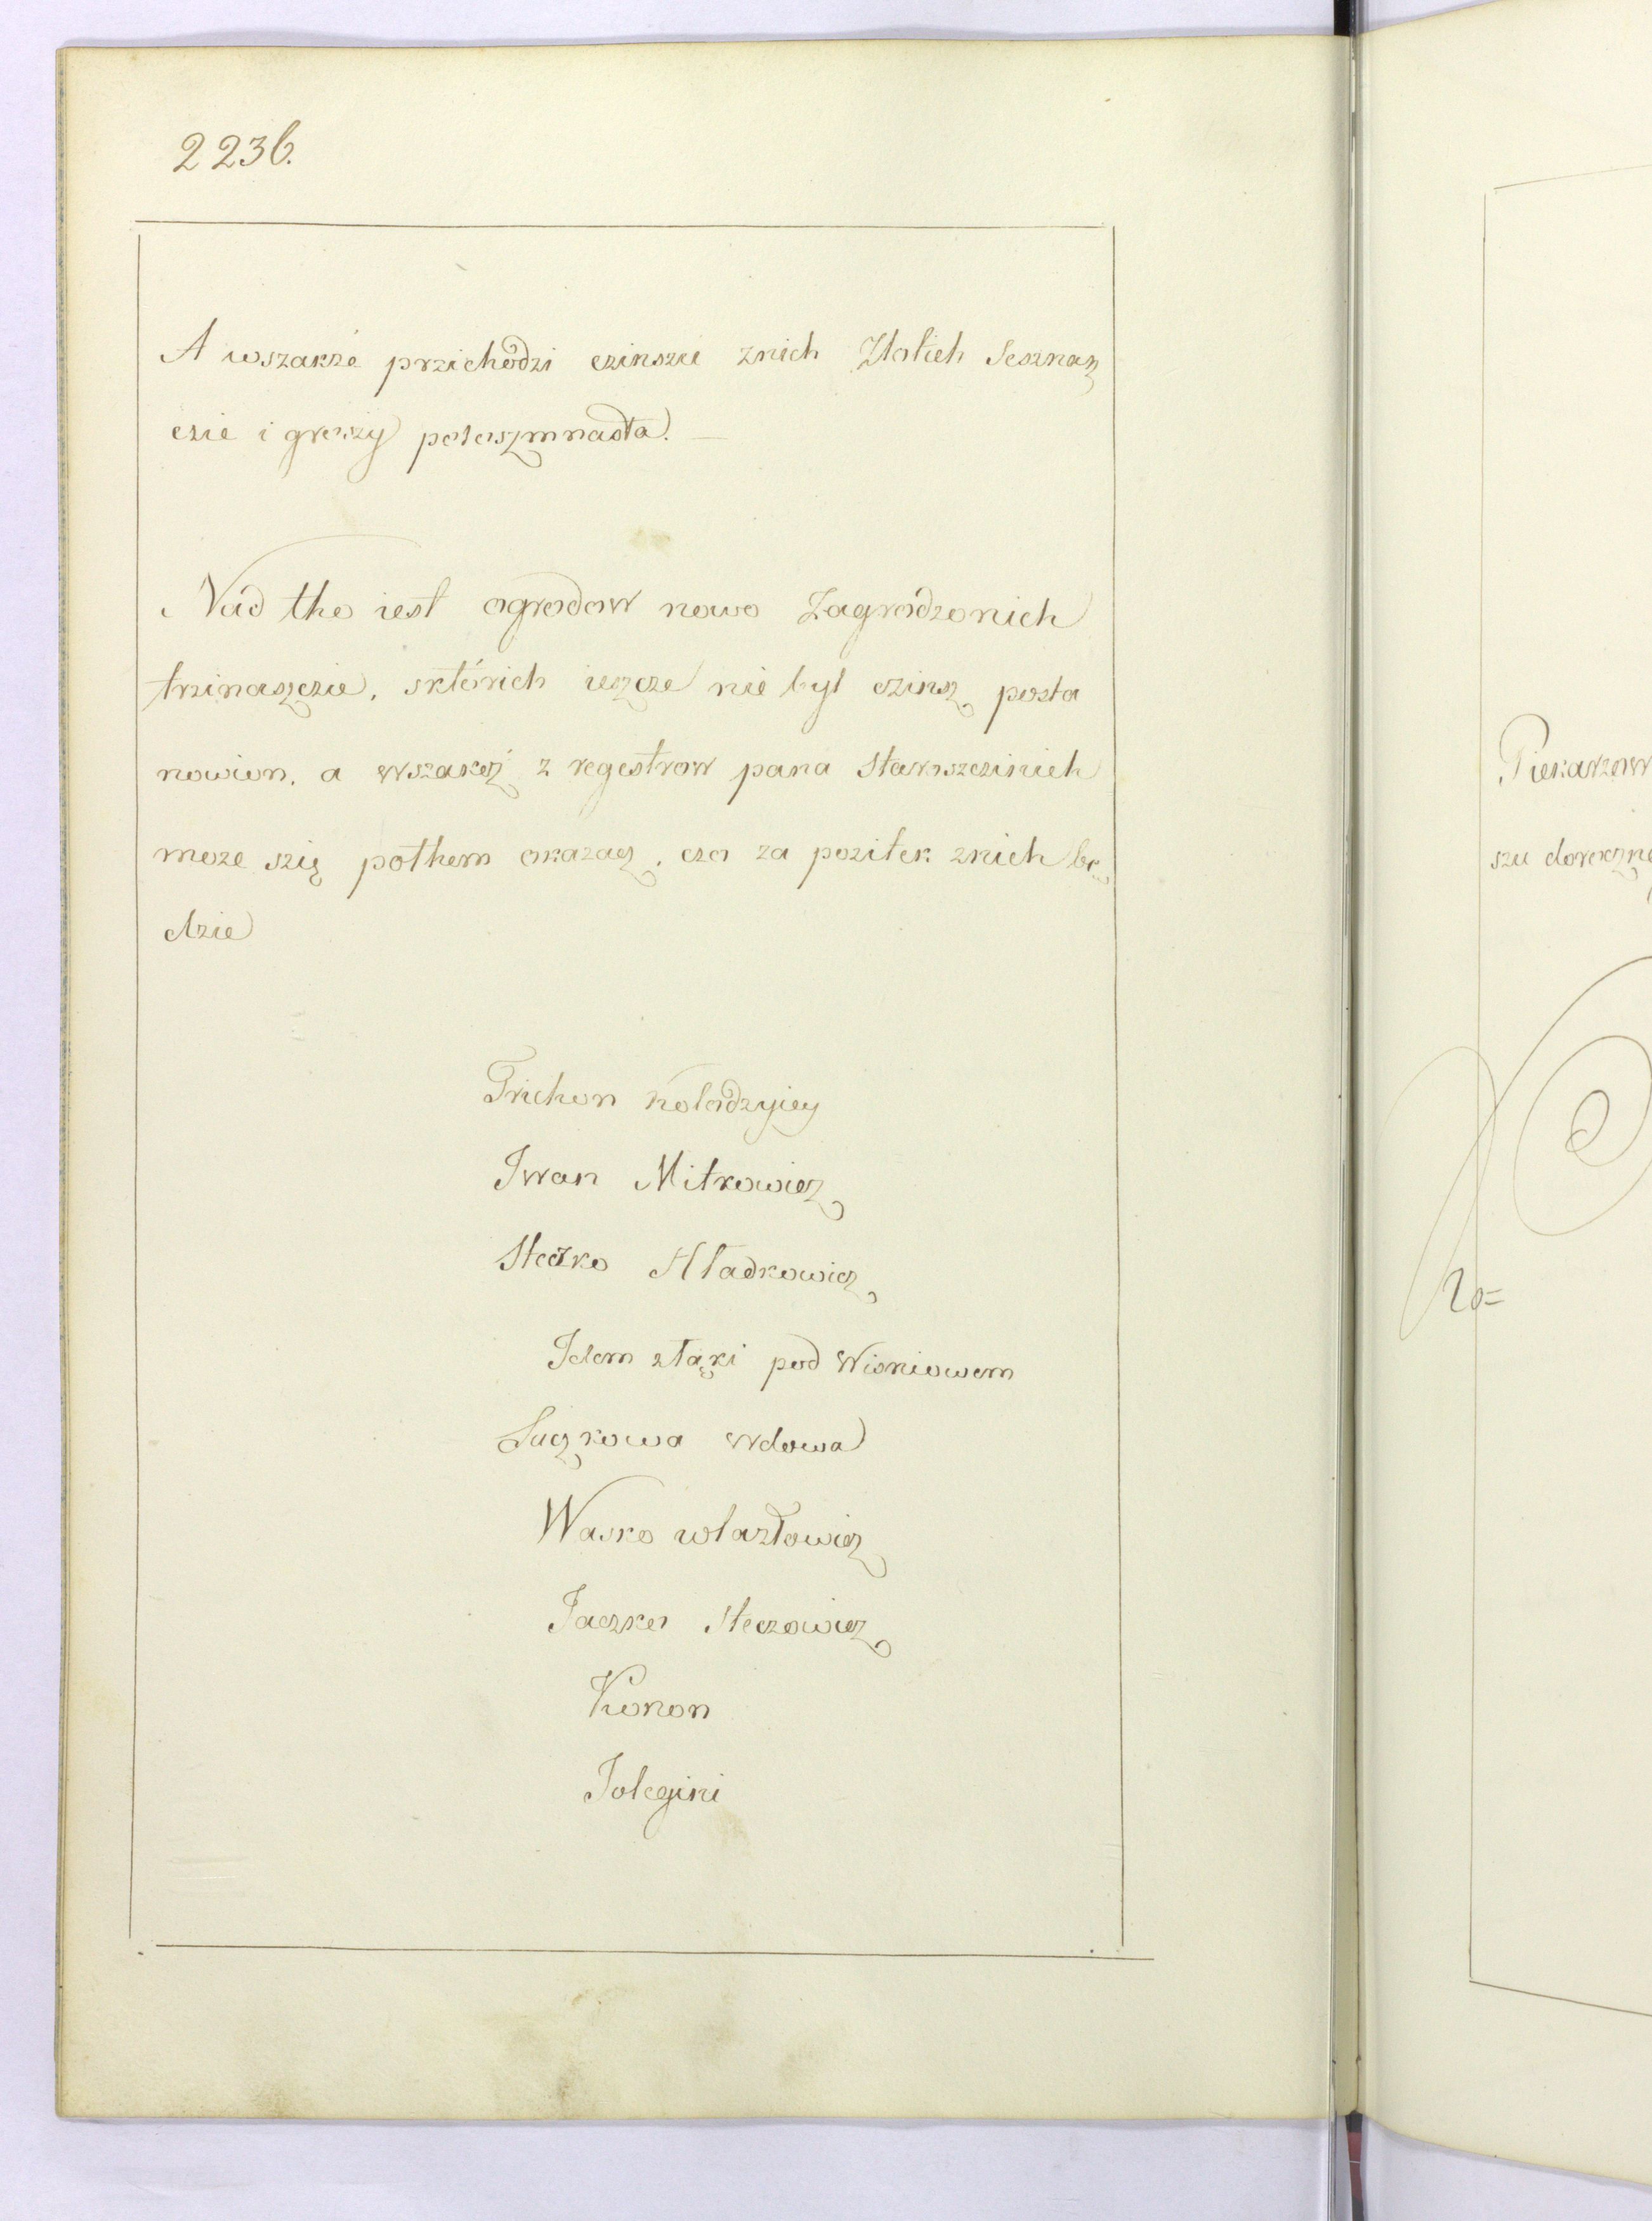 2236.
A wszakże przichodzi czinszu znich Złotich Sesznaz
czie i groszy poloszmnasta.
Nad tho iest ogrodow nowo Zagrodzonich
trzinaszczie, sktórich ieszcze nie był czinsz posta
nowion. a wszakoż z regestrow pana starosczinich
moze szię pothem okazacz, czo za pozitek znich bę
dzie
Trichon Kolodzyiey
Iwan Mitkowicz
Steczko Hładkowicz
Idem złąki pod Wisniowem
Suczkowa wdowa
Wasko wlazłowicz
Jaczko Steczowicz
Konon
Tolegini
Piekarzow
szu doroczne
20=